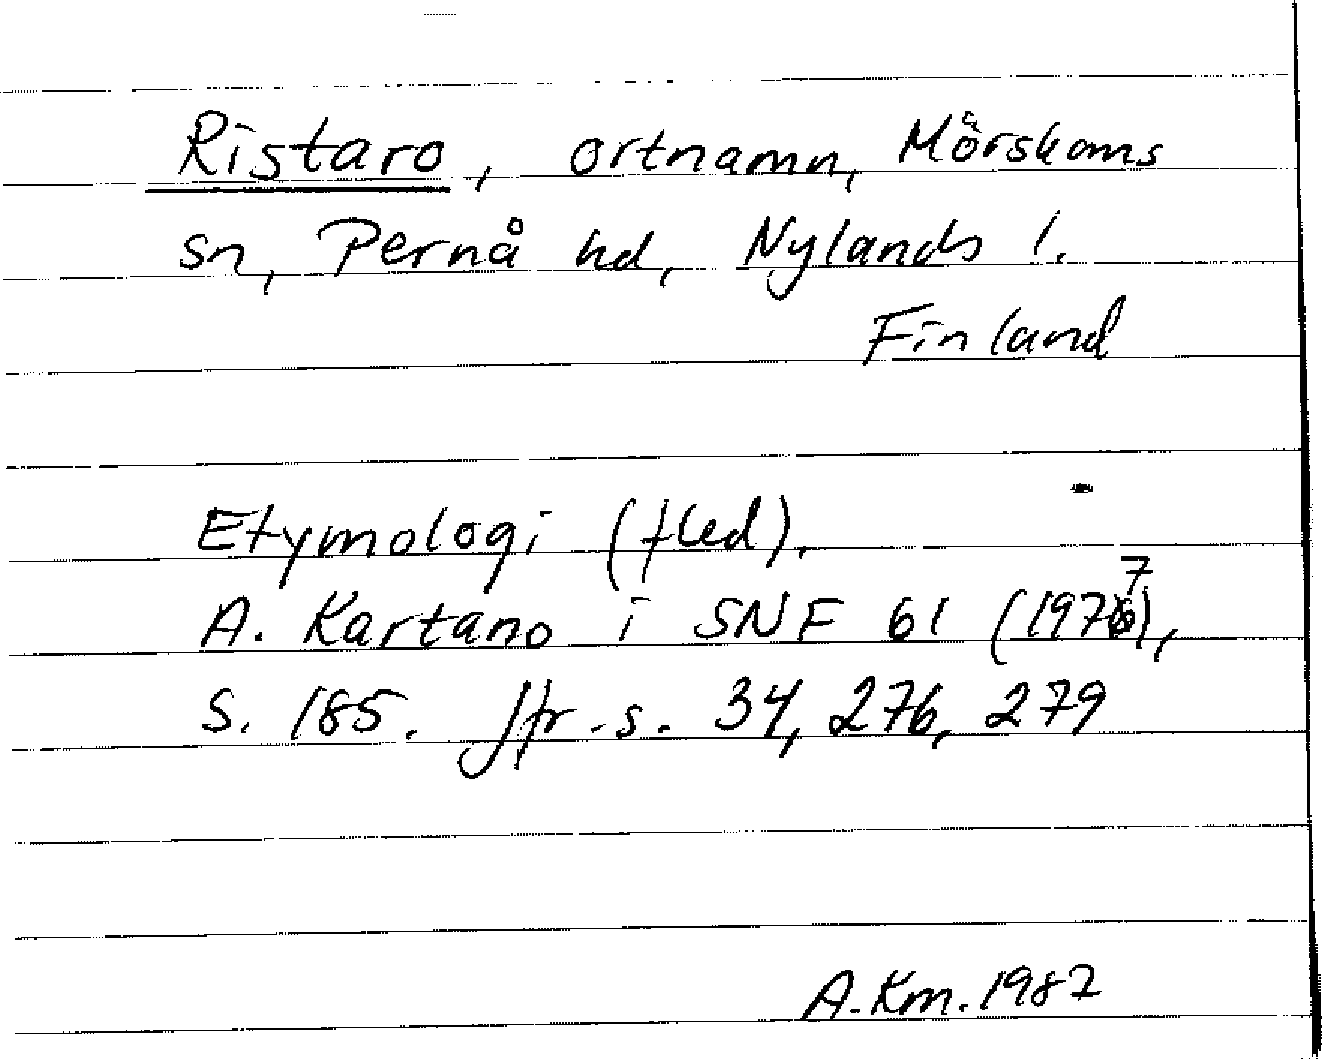 Ristaro, ortnamn, Mörskoms
sn, Pernå hd, Nylands l.
Finland
Etymologi (fled).
A. Kartano i SNF 61 (1977),
s. 185. Jfr s. 34, 276, 279
A. Km. 1987